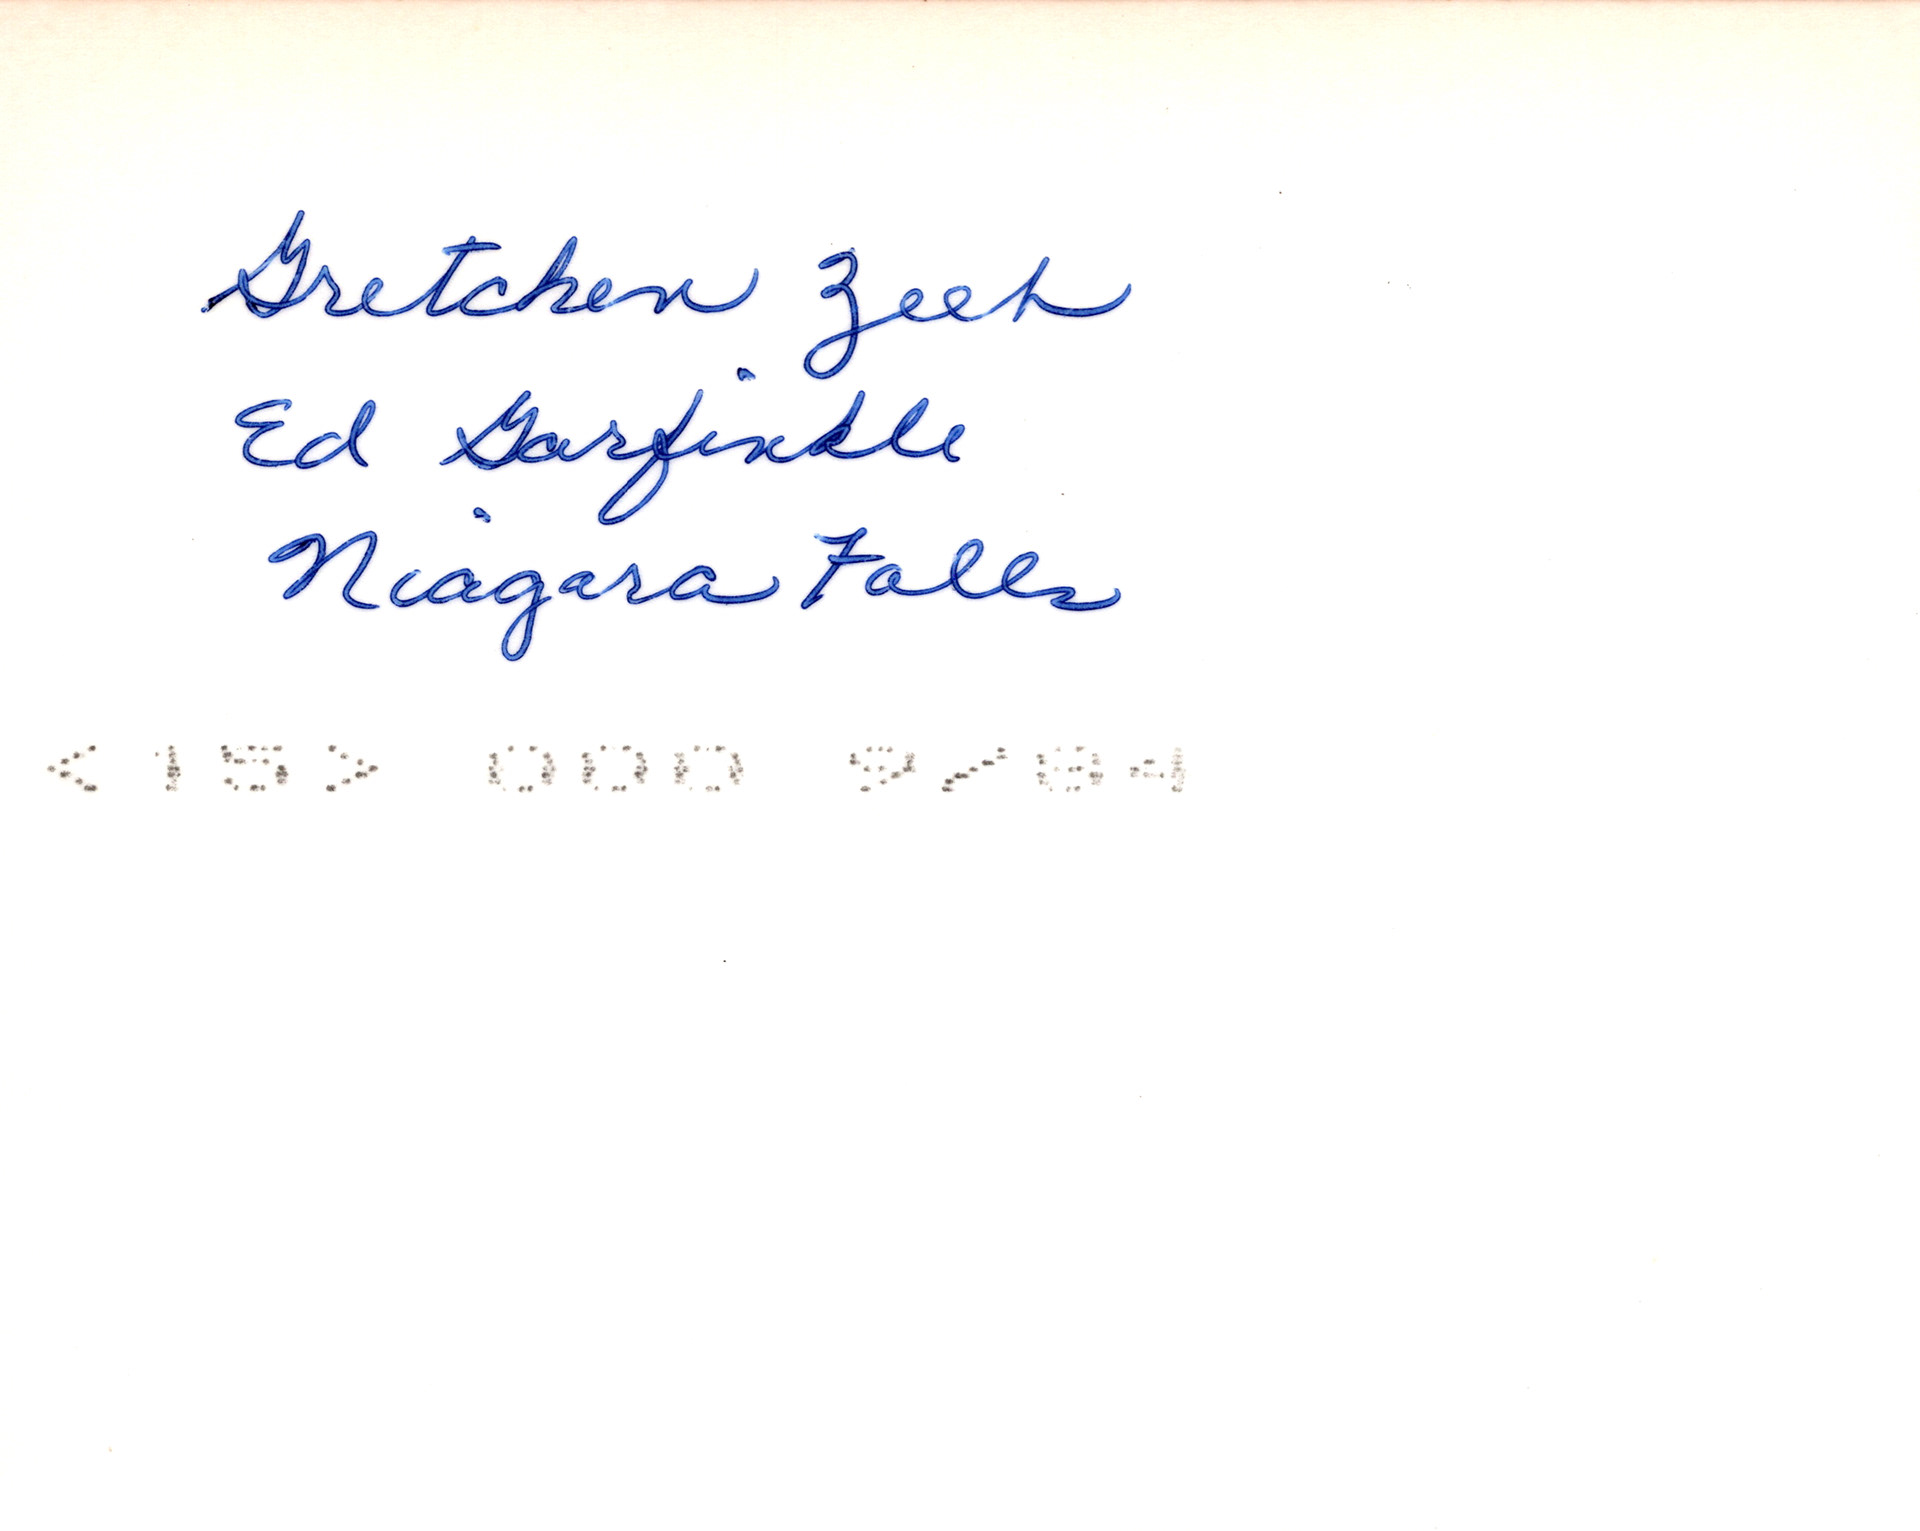 Gretchen Zeeh
Ed Garfinkle
Niagara Falls
<15> 000 9/84